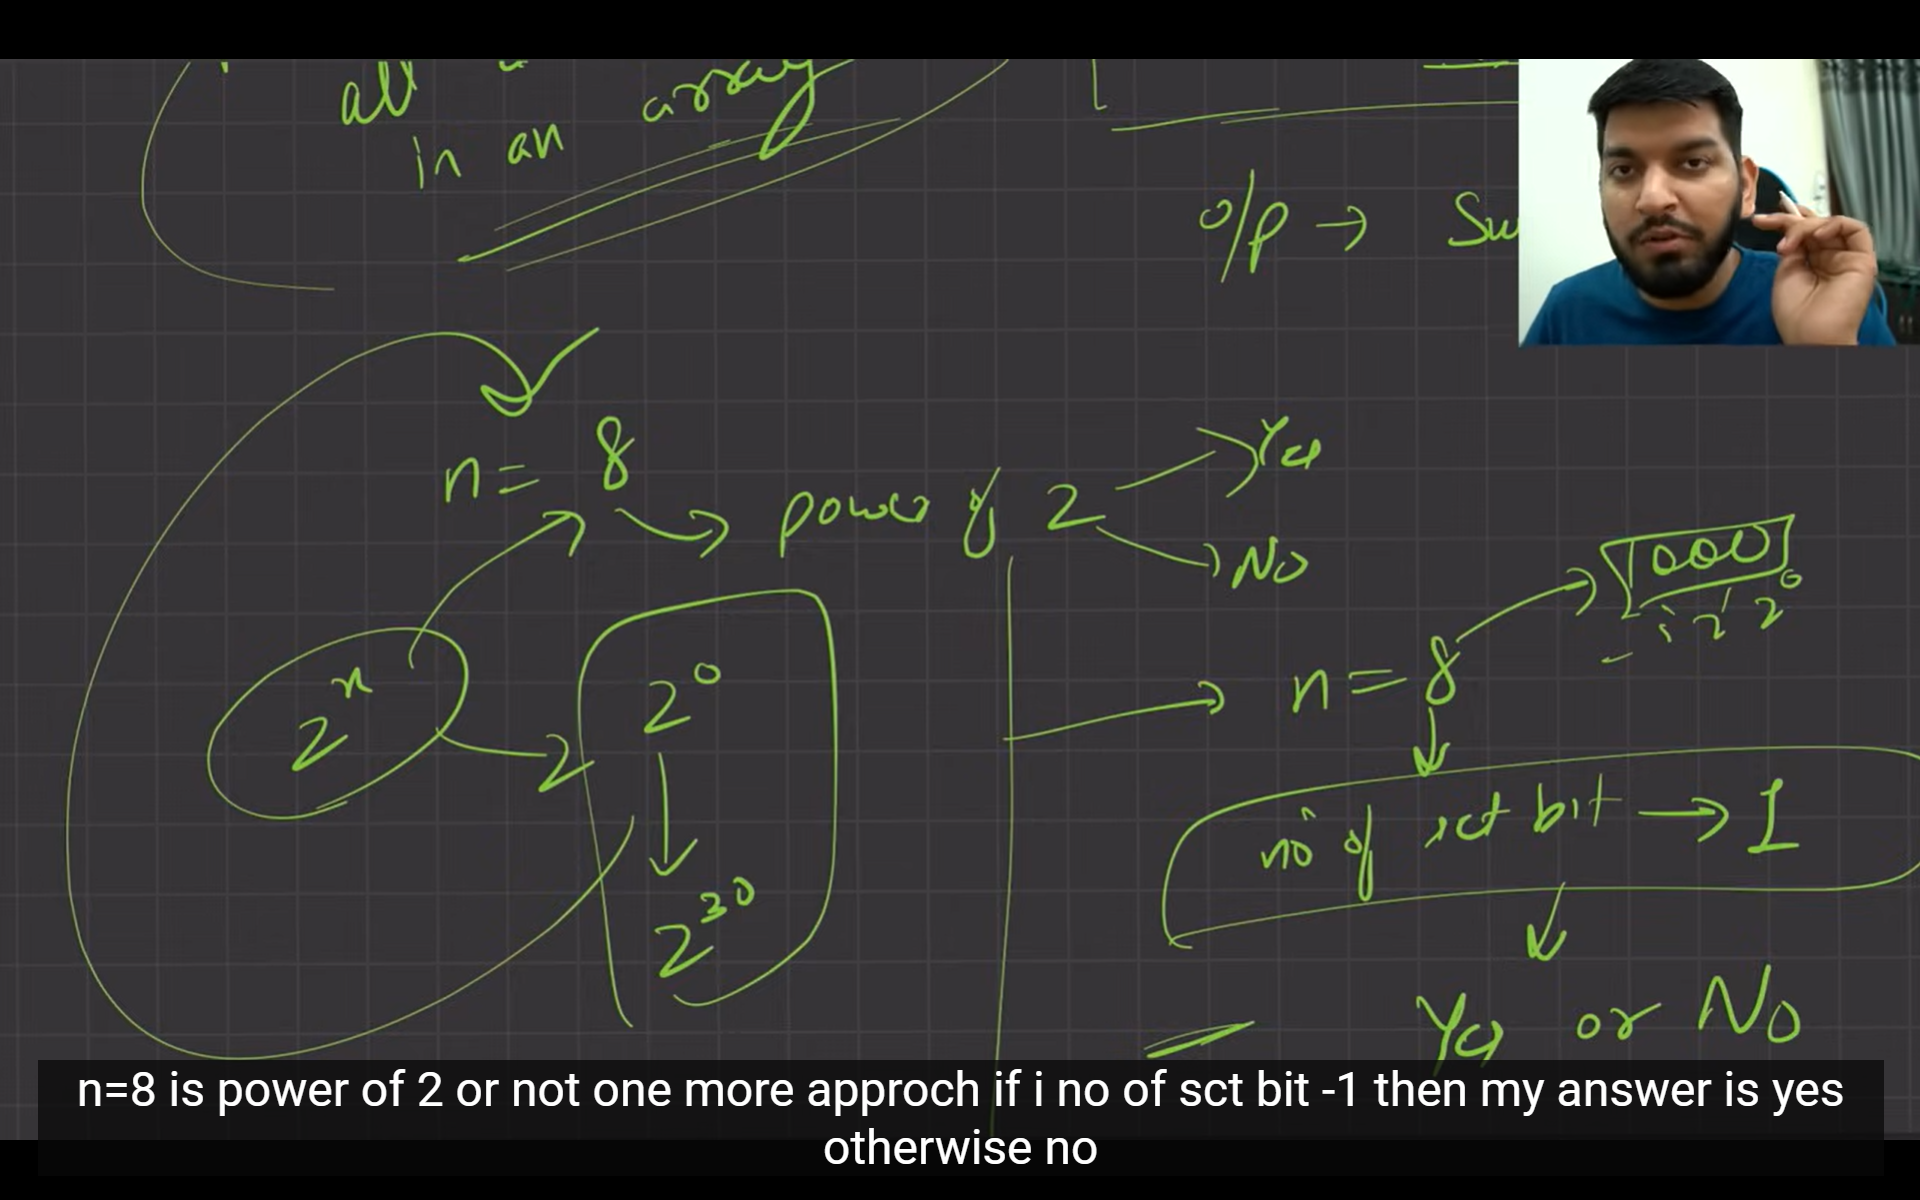 all
in an array
o/p → Su
n = 8
power of 2
Yes
No
1000
2¹ 2⁰
2ⁿ
2
2⁰
2³⁰
n = 8
no of set bit → 1
Yes or No
n=8 is power of 2 or not one more approch if i no of sct bit -1 then my answer is yes
otherwise no